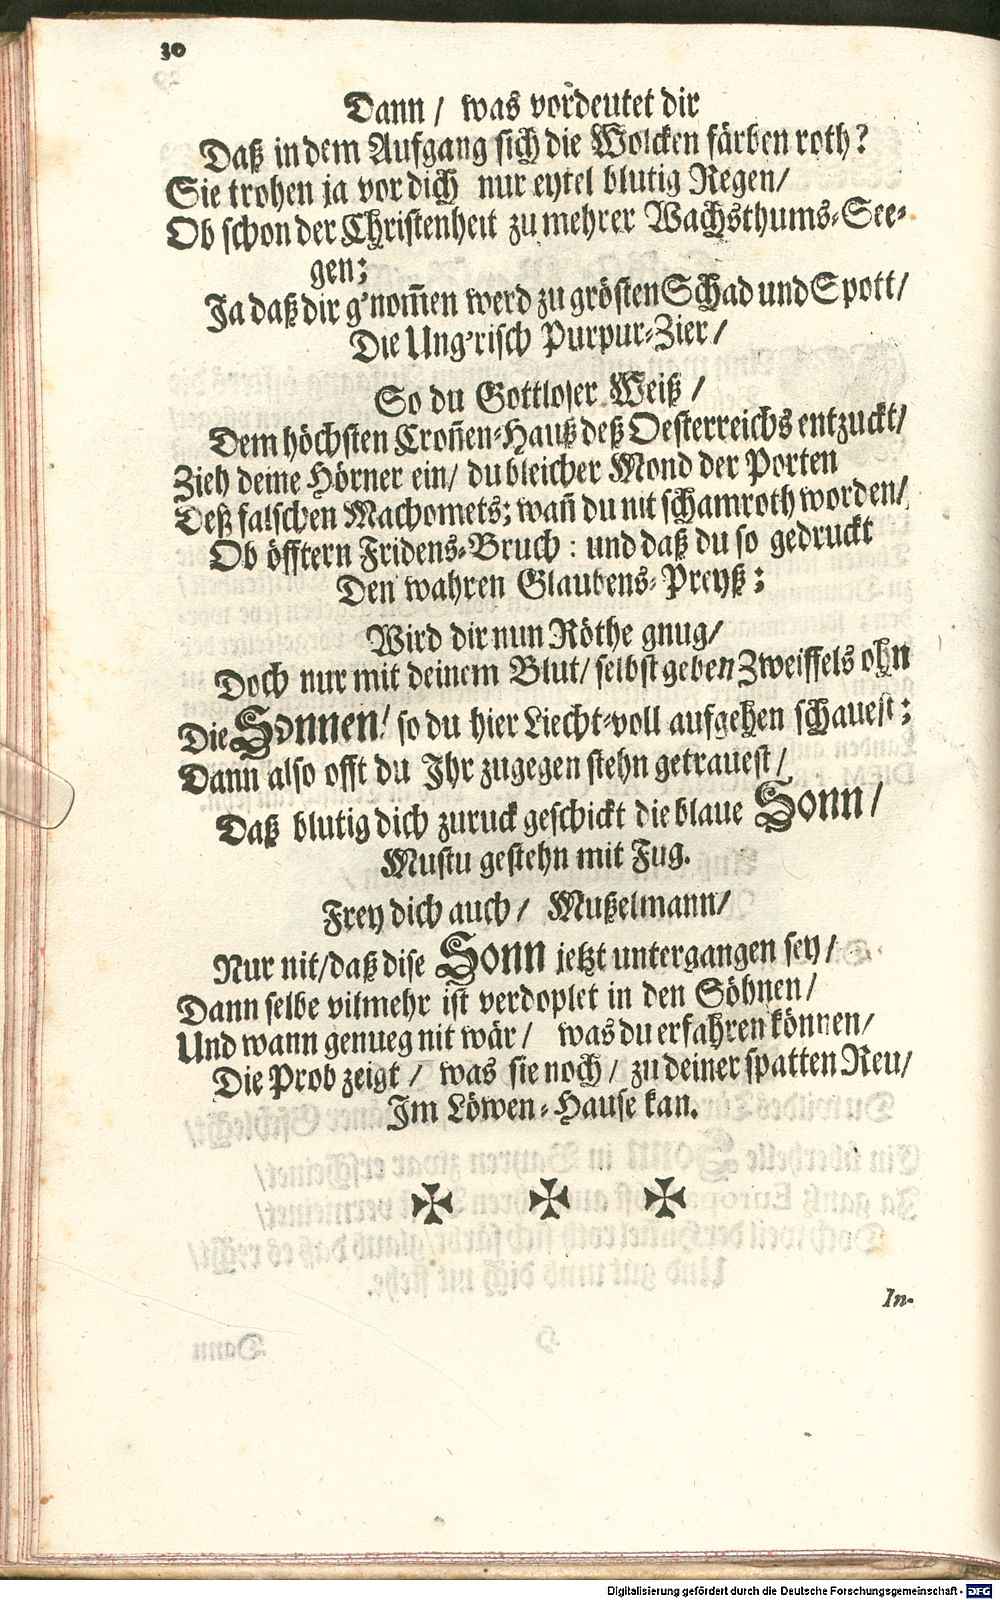 30
Dann / was vordeutet dir
Daß in dem Aufgang sich die Wolcken färben roth?
Sie trohen ja vor dich nur eytel blutig Regen/
Ob schon der Christenheit zu mehrer Wachsthums-See-
gen;
Ja daß dir g'nom̃en werd zu grösten Schad und Spott/
Die Ung'risch Purpur-Zier/
So du Gottloser Weiß /
Dem höchsten Cron̄en-Hauß deß Oesterreichs entzuckt/
Zieh deine Hörner ein/ du bleicher Mond der Porten
Deß falschen Machomets; wan̄ du nit schamroth worden/
Ob öfftern Fridens-Bruch : und daß du so gedruckt
Den wahren Glaubens-Preyß;
Wird dir nun Röthe gnug/
Doch nur mit deinem Blut/ selbst geben Zweiffels ohn
Die Sonnen/ so du hier Liecht-voll aufgehen schauest;
Dann also offt du Ihr zugegen stehn getrauest/
Daß blutig dich zuruck geschickt die blaue Sonn/
Mustu gestehn mit Fug.
Frey dich auch / Mußelmann/
Nur nit/daß dise Sonn jetzt untergangen sey/
Dann selbe vilmehr ist verdoplet in den Söhnen/
Und wann genueg nit wär / was du erfahren können/
Die Prob zeigt / was sie noch/ zu deiner spatten Reu/
Im Löwen-Hause kan.
In-
Dann
Digitalisierung gefördert durch die Deutsche Forschungsgemeinschaft - DFG